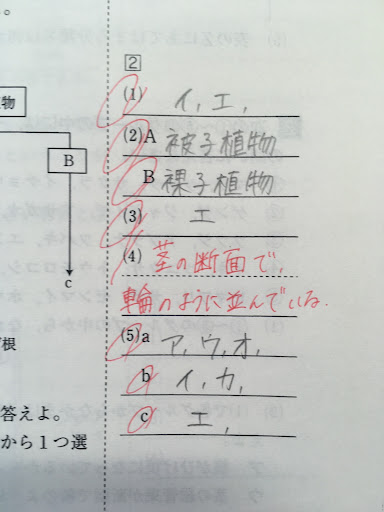 。
2
物
(1) イ, エ,
(2) A 被子植物
B
B 裸子植物
(3) エ
(4) 茎の断面で,
輪のように並んでいる.
c
根
(5) a ア, ウ, オ,
b イ, カ,
答えよ。
c エ,
から1つ選